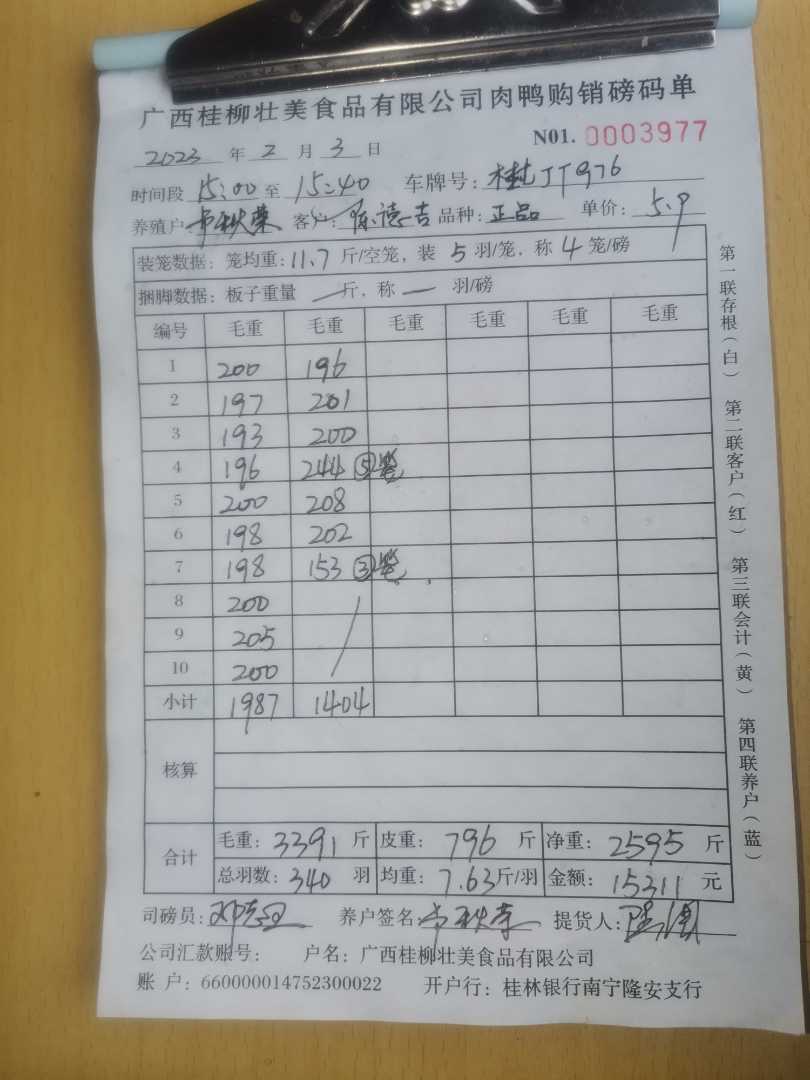 广西桂柳壮美食品有限公司肉鸭购销磅码单
N01. 0003977
2023 年 2 月 3 日
时间段 15:00 至 15:40 车牌号: 桂
养殖户: 秋荣 客户: 陈德吉 品种: 正品 单价: 5.9
装笼数据: 笼均重: 11.7 斤/空笼, 装 5 羽/笼, 称 4 笼/磅
捆脚数据: 板子重量 — 斤, 称 — 羽/磅
编号 毛重 毛重 毛重 毛重 毛重 毛重
1 200 196
2 197 201
3 193 200
4 196 244 ⑤笼
5 200 208
6 198 202
7 198 153 ③笼
8 200
9 205
10 200
小计 1987 1404
核算
合计 毛重: 3391 斤 皮重: 796 斤 净重: 2595 斤
总羽数: 340 羽 均重: 7.63 斤/羽 金额: 15311 元
司磅员: 养户签名: 提货人:
公司汇款账号: 户名: 广西桂柳壮美食品有限公司
账 户: 660000014752300022 开户行: 桂林银行南宁隆安支行
第一联存根(白) 第二联客户(红) 第三联会计(黄) 第四联养户(蓝)